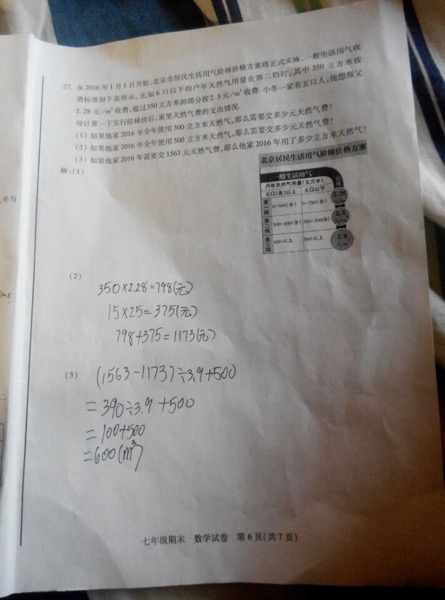 27. 从2016年1月1日开始,北京市居民生活用气阶梯价格方案将正式实施,一般生活用气收
费标准如下表所示,比如6口以下的户年天然气用量在第二档时,其中350立方米按
2.28元/m³收费,超过350立方米的部分按2.5元/m³收费.小冬一家有五口人,他想帮父
母计算一下实行阶梯价后,家里天然气费的支出情况.
(1) 如果他家2016年全年使用300立方米天然气,那么需要交多少元天然气费?
(2) 如果他家2016年全年使用500立方米天然气,那么需要交多少元天然气费?
(3) 如果他家2016年需要交1563元天然气费,那么他家2016年用了多少立方米天然气?
解:(1)
北京居民生活用气阶梯价格方案
一般生活用气
户年天然气用量(立方米)
6口(含)以上 6口以下
第一档
第二档
第三档 以上 以上
(2)
350×2.28=798(元)
15×25=375(元)
798+375=1173(元)
(3) (1563-1173)÷3.9+500
=390÷3.9+500
=100+500
=600(m³)
七年级期末 数学试卷 第6页(共7页)